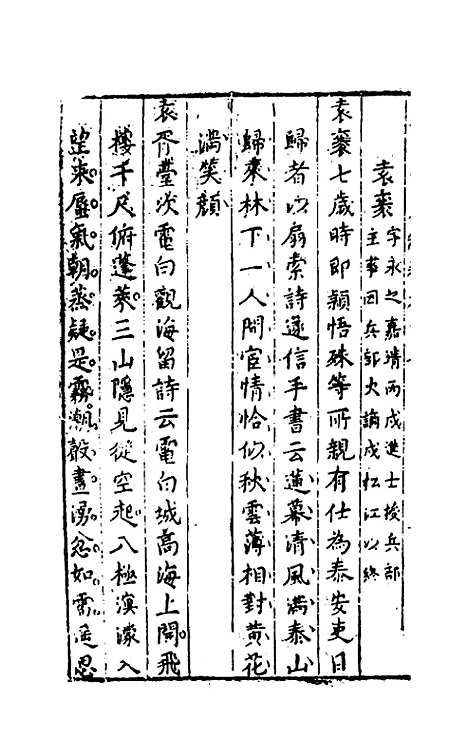 袁袠
字永之嘉靖丙戌進士授兵部
主事因兵部火謫戍松江以終
袁袠七歲時即穎悟殊等所親有仕為泰安吏目
歸者以扇索詩遂信手書云蓮幕清風滿泰山
歸來林下一人閒宦情恰似秋雲薄相對黃花
滿笑顏
袁胥臺次電白觀海留詩云電白城高海上開飛
樓千尺俯蓬萊三山隱見從空起八極溟濛入
望來蜃氣朝蒸疑是霧潮聲晝湧忽如雷遥思